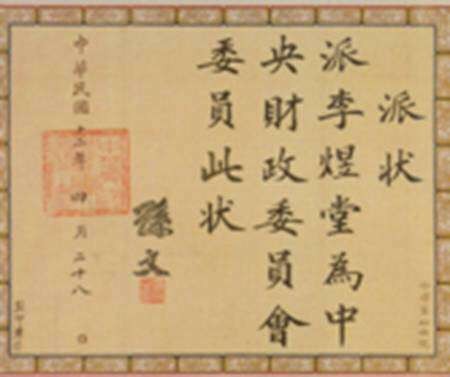 派状
派李煜堂為中
央財政委員會
委員此状
孫文
中華民國 年四月二十八日